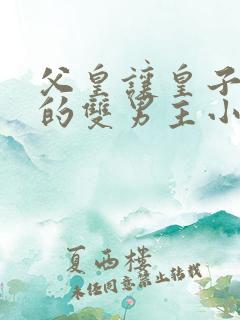 父皇讓皇子
的雙男主小
夏西樓
未经同意禁止转载